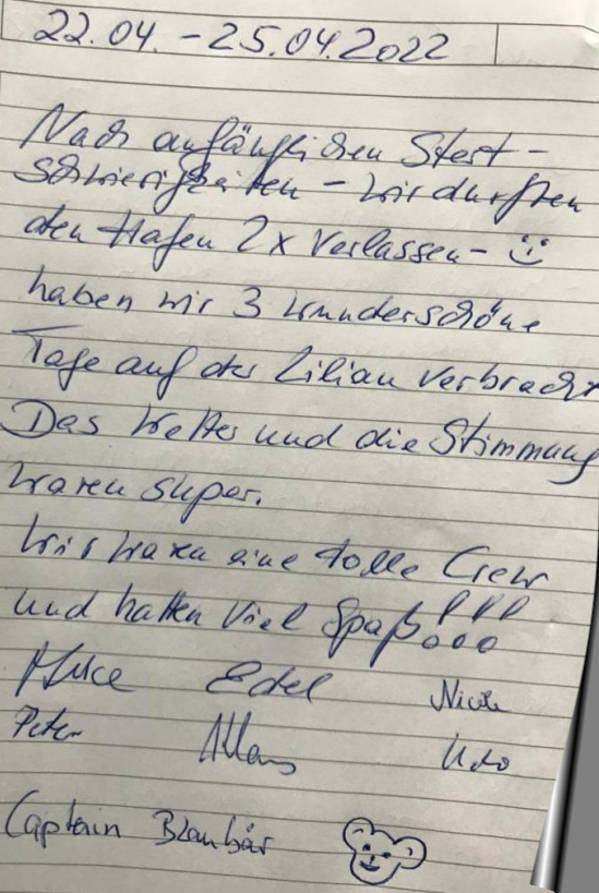 22.04. - 25.04.2022
Nach anfänglichen Start-
schwierigkeiten - wir durften
den Hafen 2x verlassen -
haben wir 3 wunderschöne
Tage auf der Lilian verbracht
Das Wetter und die Stimmung
waren super.
Wir waren eine tolle Crew
und hatten viel Spaß!!!
Edel Nicole
Peter Klaus Udo
Captain Blaubär